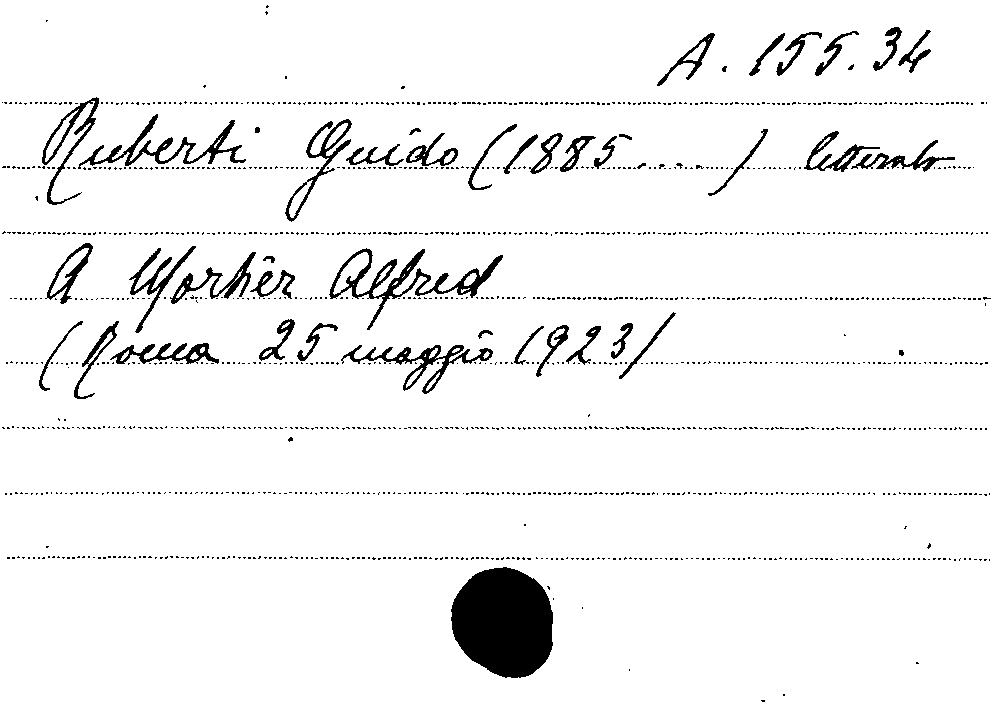 A. 155. 34
Ruberti Guido (1885 ....) letterato
A Mortier Alfred
(Roma 25 maggio 1923)